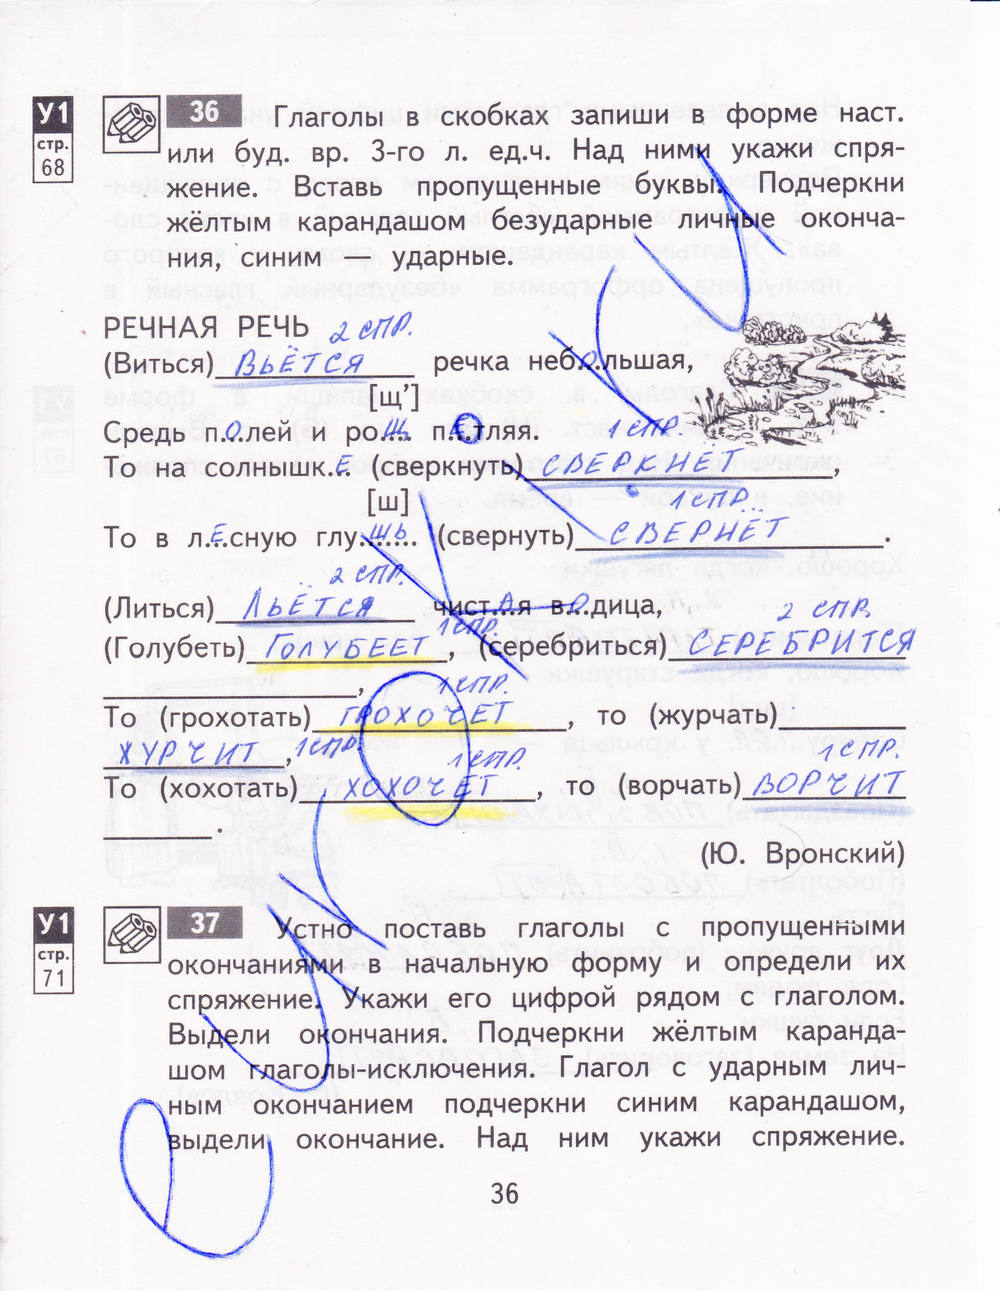 У1
стр.
68
36 Глаголы в скобках запиши в форме наст.
или буд. вр. 3-го л. ед.ч. Над ними укажи спря-
жение. Вставь пропущенные буквы. Подчеркни
жёлтым карандашом безударные личные оконча-
ния, синим — ударные.
РЕЧНАЯ РЕЧЬ 2 СПР.
(Виться) ВЬЁТСЯ речка неб.о.льшая,
[щ']
Средь п.О.лей и ро.Щ. п.Е.тляя. 1 СПР.
То на солнышк.Е (сверкнуть) СВЕРКНЁТ,
[ш] 1 СПР.
То в л.Е.сную глу.ШЬ. (свернуть) СВЕРНЁТ.
2 СПР.
(Литься) ЛЬЁТСЯ чист.А.я в.О.дица,
1 СПР. 2 СПР.
(Голубеть) ГОЛУБЕЕТ, (серебриться) СЕРЕБРИТСЯ
,
1 СПР.
То (грохотать) ГРОХОЧЕТ, то (журчать)
ЖУРЧИТ, 1 СПР. 1 СПР. 1 СПР.
То (хохотать) ХОХОЧЕТ, то (ворчать) ВОРЧИТ
.
(Ю. Вронский)
У1
стр.
71
37 Устно поставь глаголы с пропущенными
окончаниями в начальную форму и определи их
спряжение. Укажи его цифрой рядом с глаголом.
Выдели окончания. Подчеркни жёлтым каранда-
шом глаголы-исключения. Глагол с ударным лич-
ным окончанием подчеркни синим карандашом,
выдели окончание. Над ним укажи спряжение.
36